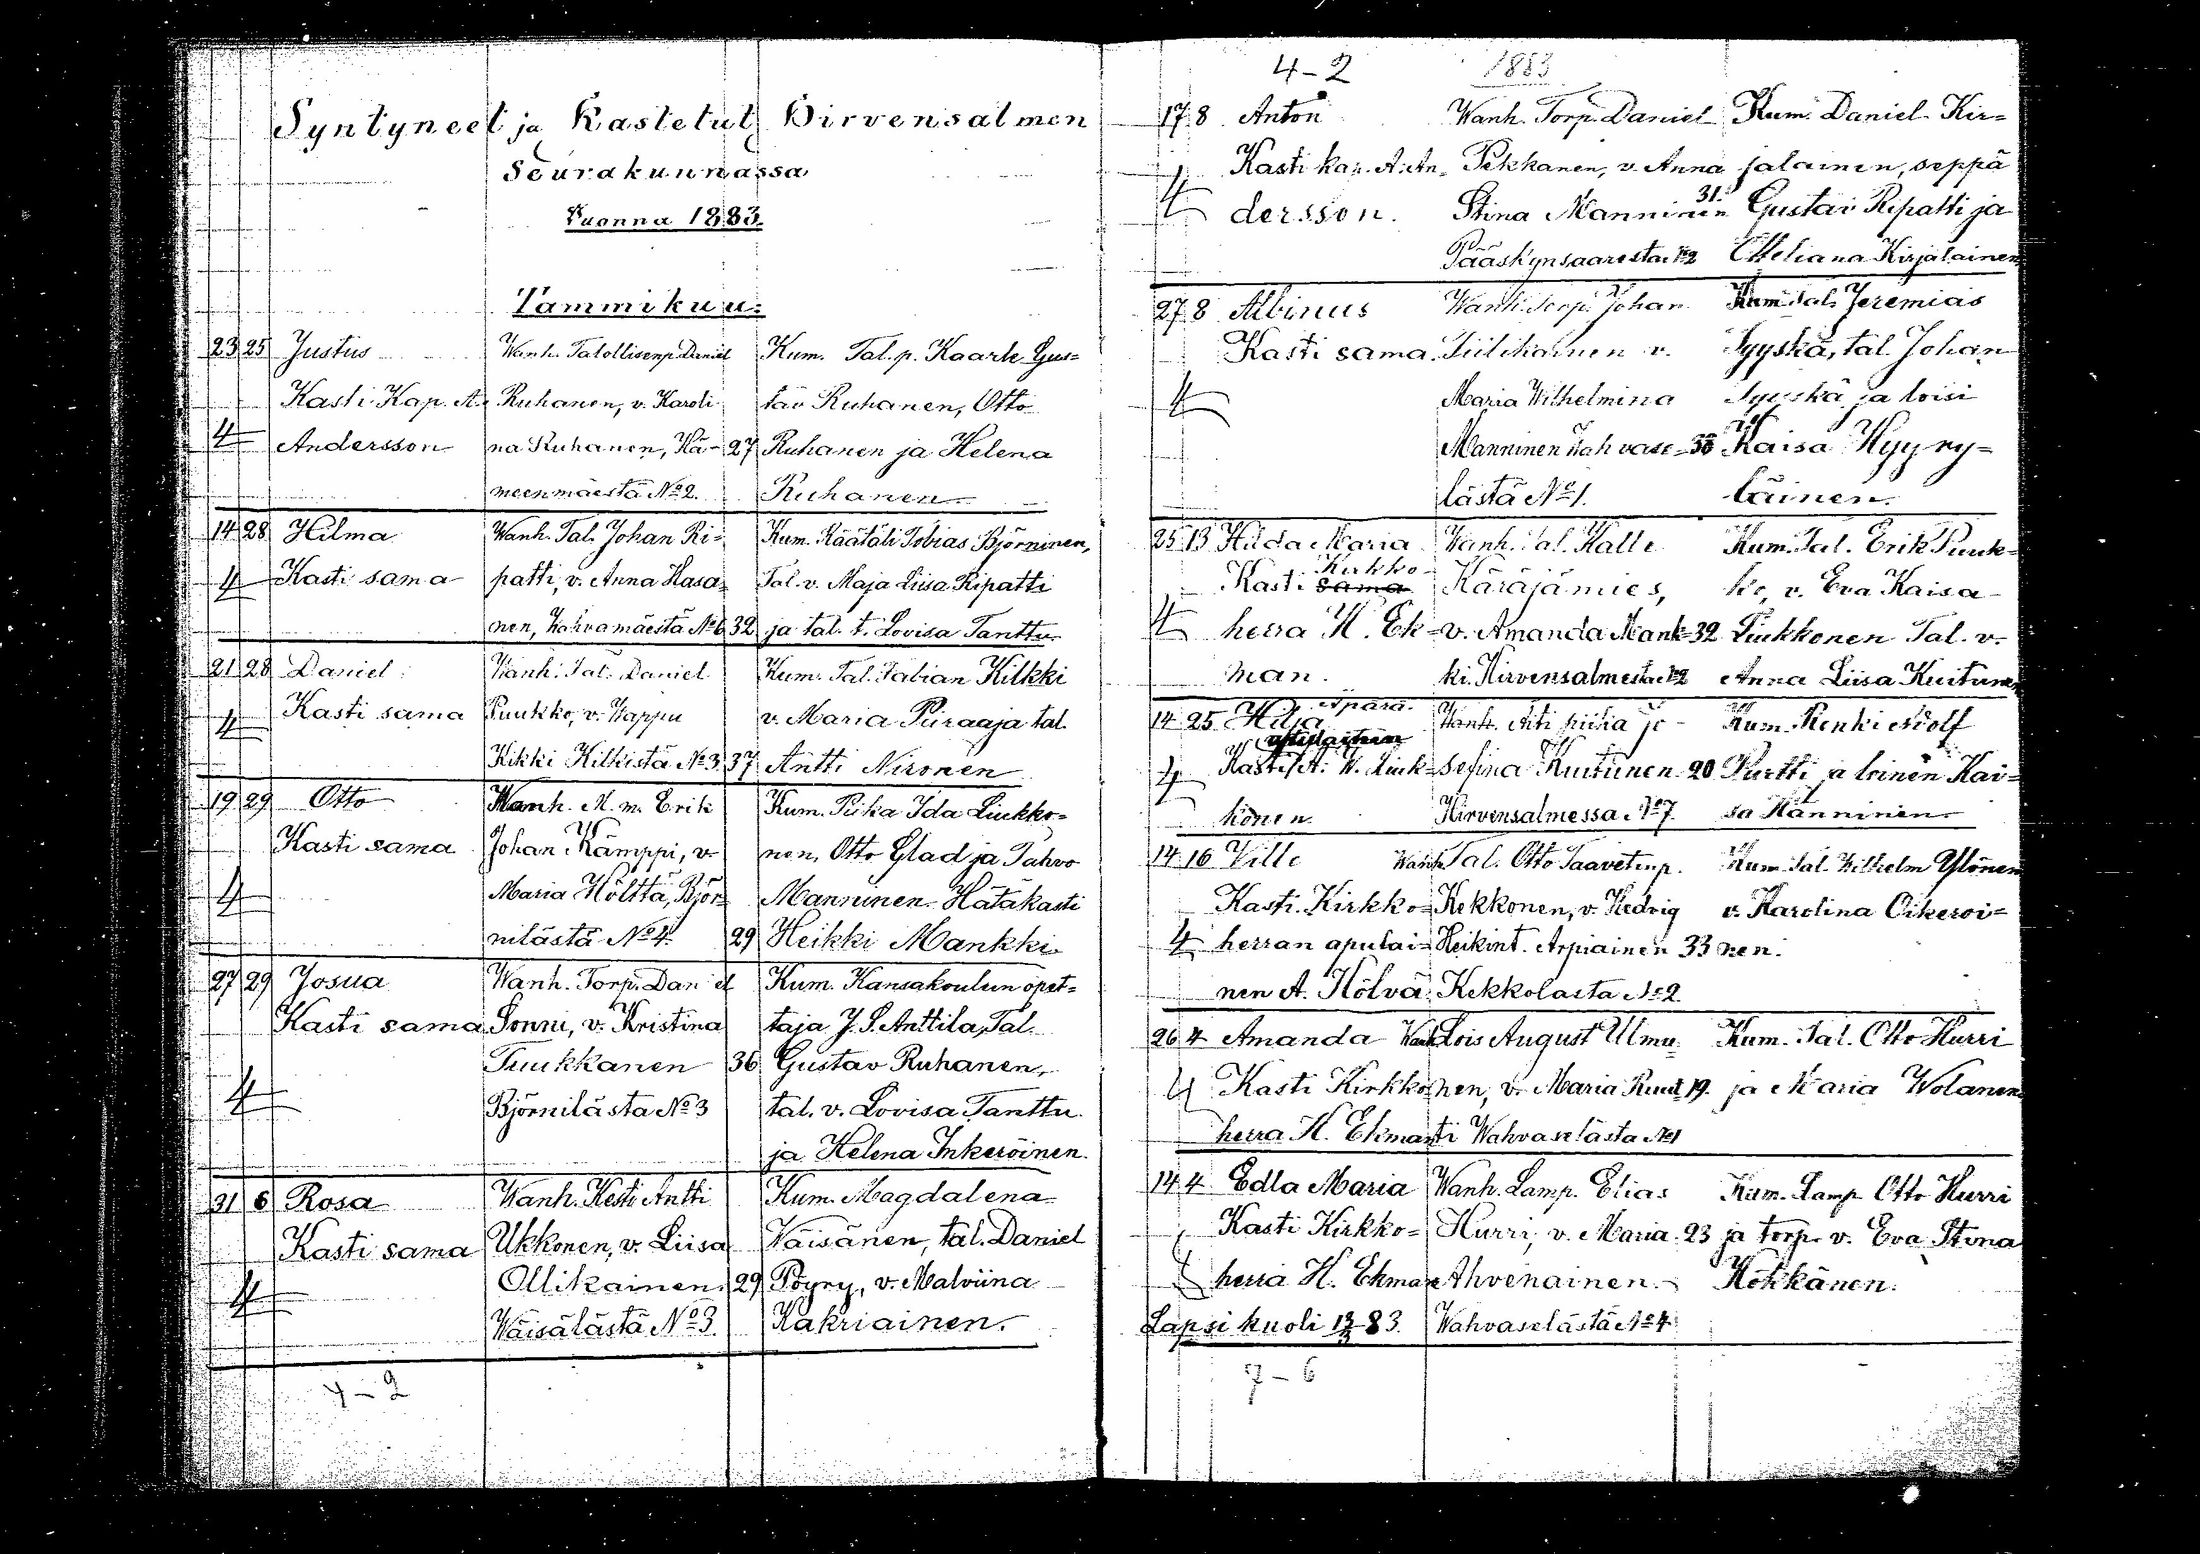 Syntyneet ja Kastetut Hirvensalmen
Seurakunnassa
Vuonna 1883.
Tammikuu:
23 25 Justus Wanh. Talollisenp. Daniel Kum. Tal. p. Kaarle Gus=
Kasti Kap. A. Ruhanen, v. Karoli tav Ruhanen, Otto
4 Andersson na Ruhanen, Hä- 27 Ruhanen ja Helena
meenmäestä No 2. Ruhanen
14 28 Hilma Wanh. Tal. Johan Ri= Kum. Räätäli Tobias Björninen,
4 Kasti sama patti, v. Anna Hasa= Tal. v. Maja Liisa Ripatti
nen, Wahvamäestä No 6 32 ja tal. t. Lovisa Tanttu
21 28 Daniel Wanh. Tal. Daniel Kum. Tal. Fabian Kilkki
4 Kasti sama Puukko, v. Wappu v. Maria Piiraa ja tal.
Kikki Kilkistä No 3 37 Antti Nironen
19 29 Otto Wanh. M. m. Erik Kum. Piika Ida Liukko=
Kasti sama Johan Kämppi, v. nen, Otto Glad ja Tahvo
4 Maria Hölttä, Björ= Manninen. Hätäkasti
nilästä No 4. 29 Heikki Mankki.
27 29 Josua Wanh. Torp. Daniel Kum. Kansakoulun opet=
Kasti sama Sonni, v. Kristina taja J. S. Anttila, Tal.
Tuukkanen 36 Gustav Ruhanen,
4 Björnilästa No 3 tal. v. Lovisa Tanttu
ja Helena Inkeröinen.
31 6 Rosa Wanh. Kesti Antti Kum. Magdalena
Kasti sama Ukkonen, v. Liisa Väisänen, tal. Daniel
4 Ollikainen. 29 Pöyry, v. Malviina
Wäisälästä No 3. Kakriainen.
4-2
4-2 1883
17 8 Anton Wanh. Torp. Daniel Kum. Daniel Kir=
4 Kasti kap. A. An= Pekkanen, v. Anna jalainen, seppä
dersson. Stina Manninen 31. Gustav Ripatti ja
Pääskynsaaresta No 2 Otteliana Kirjalainen
27 8 Albinus Wanh. Torp. Johan Kum. Tal. Jeremias
Kasti sama. Tiilikainen v. Syyskä, tal. Johan
4 Maria Wilhelmina Syyskä ja loisi
Manninen Wahvase= 38 Kaisa Hyyry=
lästä No 1. läinen.
25 13 Hilda Maria Wanh. Tal. Kalle Kum. Tal. Erik Puuk=
Kasti sama Kirkko- Käräjämies, ko, v. Eva Kaisa
4 herra K. Ek= v. Amanda Mank= 32 Liukkonen Tal. v.
man. ki. Hirvensalmesta No 2 Anna Liisa Kuitunen
14 25 Hilja Äpärä. Wanh. piika Jo- Kum. Renki Adolf
4 W. Liuk= sefina Kuitunen 20 Purtti ja loinen Kai=
konen. Hirvensalmessa No 7. sa Hänninen
14 16 Ville Wanh. Tal. Otto Taavetinp. Kum. Tal. Wilhelm Ylönen
Kasti. Kirkko= Kekkonen, v. Hedvig v. Karolina Oikeroi=
4 herran apulai= Heikint. Arpiainen 33 nen.
nen A. Hölvä Kekkolasta No 2.
26 4 Amanda Wanh. Lois August Ulmu= Kum. Tal. Otto Hurri
4 Kasti Kirkko= nen, v. Maria Ruut 19. ja Maria Wolanen
herra K. Ekman ti Wahvaselästä No 1
14 4 Edla Maria Wanh. Lamp. Elias Kum. Lamp. Otto Hurri
Kasti Kirkko= Hurri, v. Maria 23 ja torp. v. Eva Stina
4 herra K. Ekman Ahvenainen. Hökkänen.
Lapsi kuoli 83. Wahvaselästä No 4
7-6